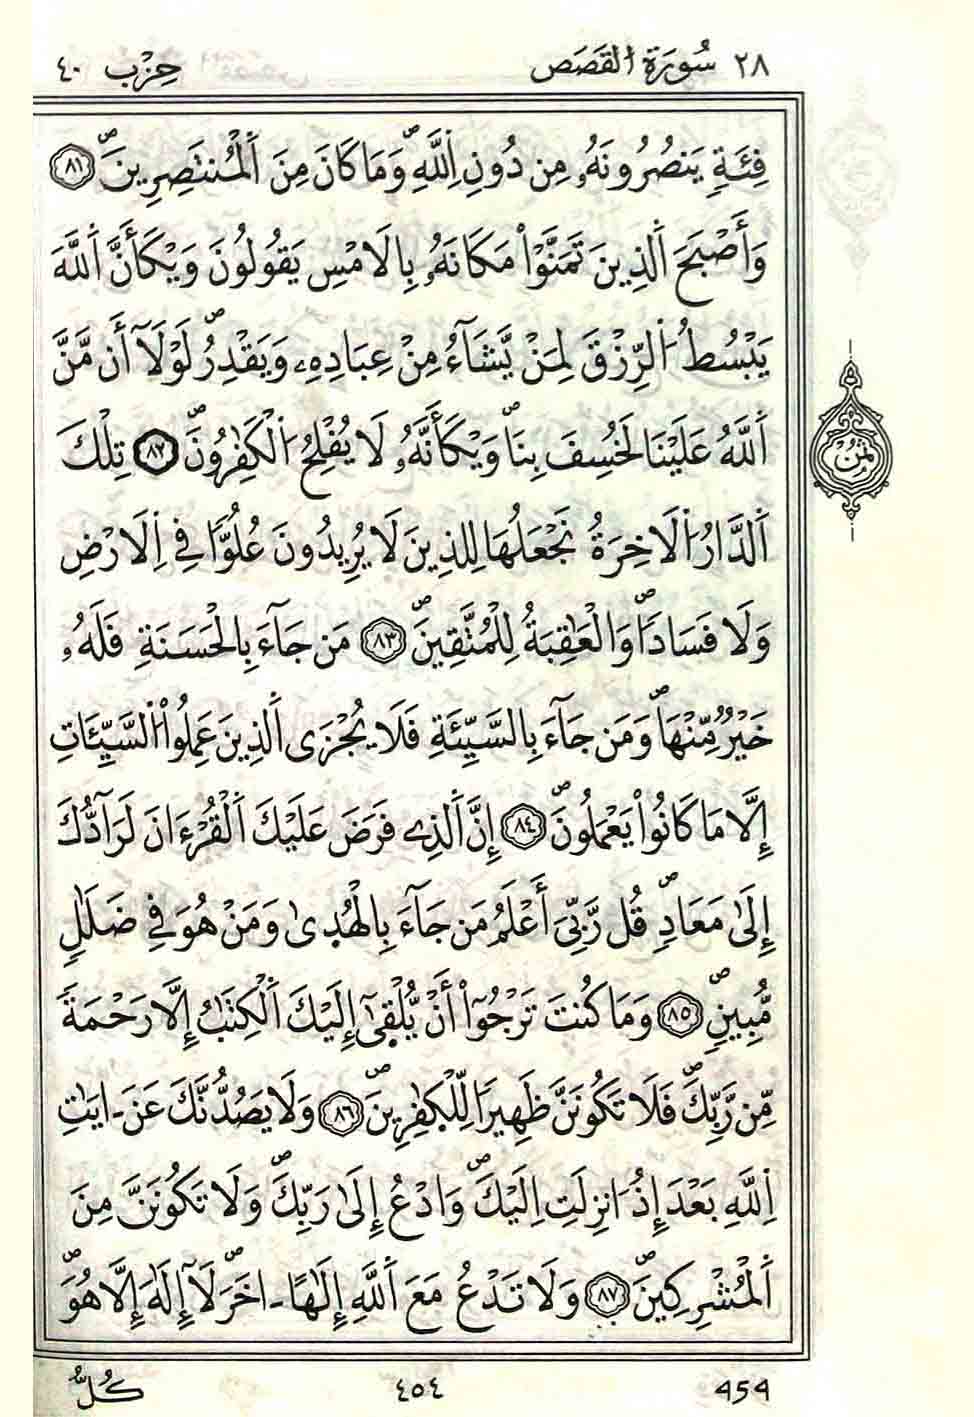 ٢٨ سُورَةُ القَصَصِ حِزْب ٤٠
فِئَةٖ يَنصُرُونَهُۥ مِن دُونِ اِ۬للَّهِۖ وَمَا كَانَ مِنَ اَ۬لْمُنتَصِرِينَۖ ٨١
وَأَصْبَحَ اَ۬لذِينَ تَمَنَّوْاْ مَكَانَهُۥ بِالَامْسِ يَقُولُونَ وَيْكَأَنَّ اَ۬للَّهَ
يَبْسُطُ اُ۬لرِّزْقَ لِمَنْ يَّشَآءُ مِنْ عِبَادِهِۦ وَيَقْدِرُۖ لَوْلَآ أَن مَّنَّ
اَ۬للَّهُ عَلَيْنَا لَخُسِفَ بِنَاۖ وَيْكَأَنَّهُۥ لَا يُفْلِحُ اُ۬لْكَٰفِرُونَۖ ٨٢ تِلْكَ
ثُمُن
اَ۬لدَّارُ اُ۬لَاخِرَةُ نَجْعَلُهَا لِلذِينَ لَا يُرِيدُونَ عُلُوّاٗ فِے اِ۬لَارْضِ
وَلَا فَسَاداٗۖ وَالْعَٰقِبَةُ لِلْمُتَّقِينَۖ ٨٣ مَن جَآءَ بِالْحَسَنَةِ فَلَهُۥ
خَيْرٞ مِّنْهَاۖ وَمَن جَآءَ بِالسَّيِّئَةِ فَلَا يُجْزَى اَ۬لذِينَ عَمِلُواْ اُ۬لسَّيِّـَٔاتِ
إِلَّا مَا كَانُواْ يَعْمَلُونَۖ ٨٤ إِنَّ اَ۬لذِے فَرَضَ عَلَيْكَ اَ۬لْقُرْءَانَ لَرَآدُّكَ
إِلَىٰ مَعَادٖۖ قُل رَّبِّيَ أَعْلَمُ مَن جَآءَ بِالْهُد۪ىٰ وَمَنْ هُوَ فِے ضَلَٰلٖ
مُّبِينٖۖ ٨٥ وَمَا كُنتَ تَرْجُوٓاْ أَنْ يُّلْق۪ىٰٓ إِلَيْكَ اَ۬لْكِتَٰبُ إِلَّا رَحْمَةٗ
مِّن رَّبِّكَۖ فَلَا تَكُونَنَّ ظَهِيراٗ لِّلْكٰ۪فِرِينَۖ ٨٦ وَلَا يَصُدُّنَّكَ عَنَ اٰيَٰتِ
اِ۬للَّهِ بَعْدَ إِذُ ا۟نزِلَتِ اِلَيْكَۖ وَادْعُ إِلَىٰ رَبِّكَۖ وَلَا تَكُونَنَّ مِنَ
اَ۬لْمُشْرِكِينَۖ ٨٧ وَلَا تَدْعُ مَعَ اَ۬للَّهِ إِلَٰهاً اٰخَرَۖ لَآ إِلَٰهَ إِلَّا هُوَۖ
454 ٤٥٤ كُلُّ